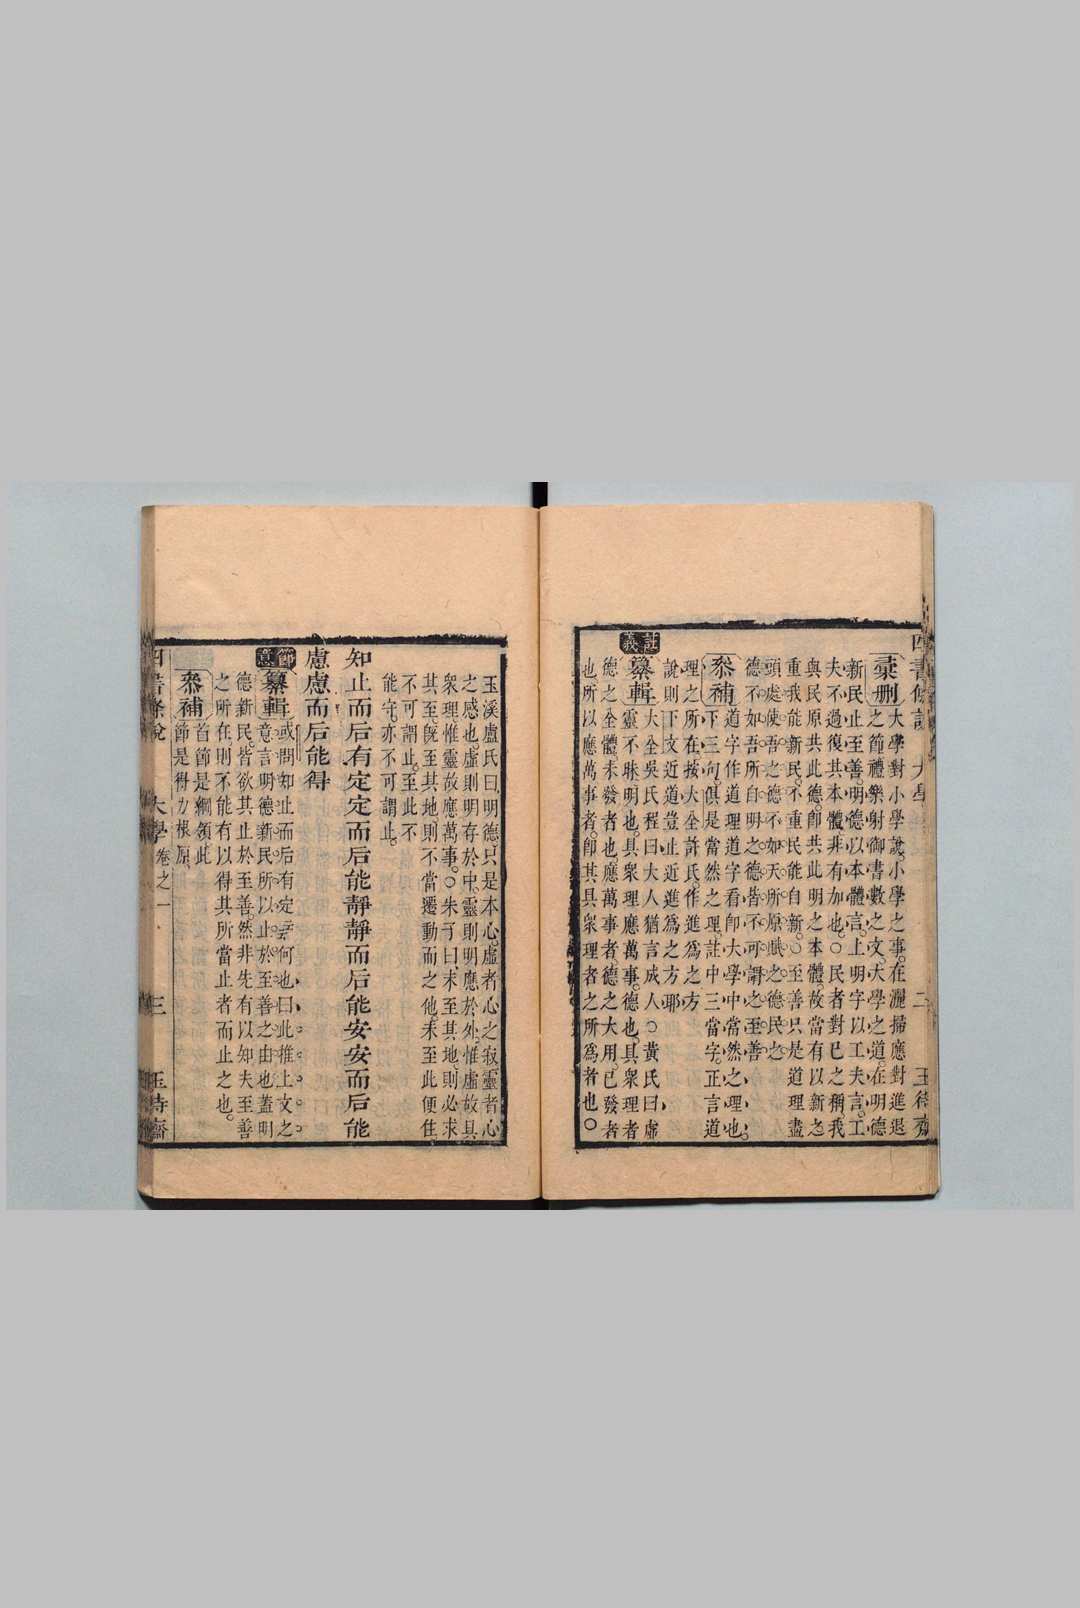 彙删
大學對小學說。小學之事。在灑掃應對進退
之節禮樂射御書數之文。大學之道。在明德
新民止至善。明德以本體言。上明字以工夫言。工
夫不過復其本體非有加也。○民者對已之稱我
與民原共此德。卽共此明之本體。故當有以新之
重我能新民。不重民能自新。○至善只是道理盡
頭處使吾之德不如天所原賦之德民之
德不如吾所自明之德皆不可謂之至善
叅補
道字作道理道字看卽大學中當然之理也。
下三句。俱是當然之理。註中三當字。正言道
理之所在。按大全許氏作進爲之方
說則下文近道豈止近進爲之方耶
註義
纂輯
大全吳氏程曰大人猶言成人○黃氏曰虛
靈不昧明也。具衆理應萬事。德也。具衆理者
德之全體未發者也應萬事者。德之大用已發者
也所以應萬事者。卽其具衆理者之所爲者也。○
二
玉溪盧氏曰。明德只是本心。虛者心之寂靈者心
之感也虛則明存於中。靈則明應於外。惟虛故具
衆理惟靈故應萬事。○朱子曰未至其地。則必求
其至旣至其地則不當遷動而之他。未至此便住。
不可謂止。至此不
能守。亦不可謂止。
知止而后有定定而后能靜靜而后能安安而后能
慮慮而后能得
節意
纂輯
或問知止而后有定云何也曰此推上文之
意言明德新民所以止於至善之由也蓋明
德新民皆欲其止於至善。然非先有以知夫至善
之所在則不能有以得其所當止者而止之也。
叅補
首節是綱領此
節是得力根原。
四書條說
大學卷之一
三
玉詩齋